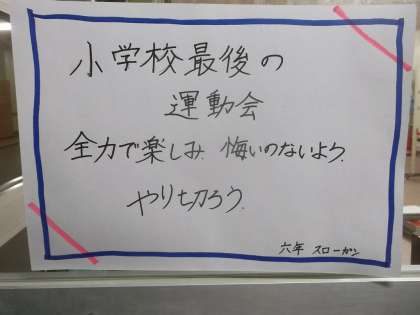 小学校最後の
運動会
全力で楽しみ 悔いのないよう
やり切ろう
六年 スローガン